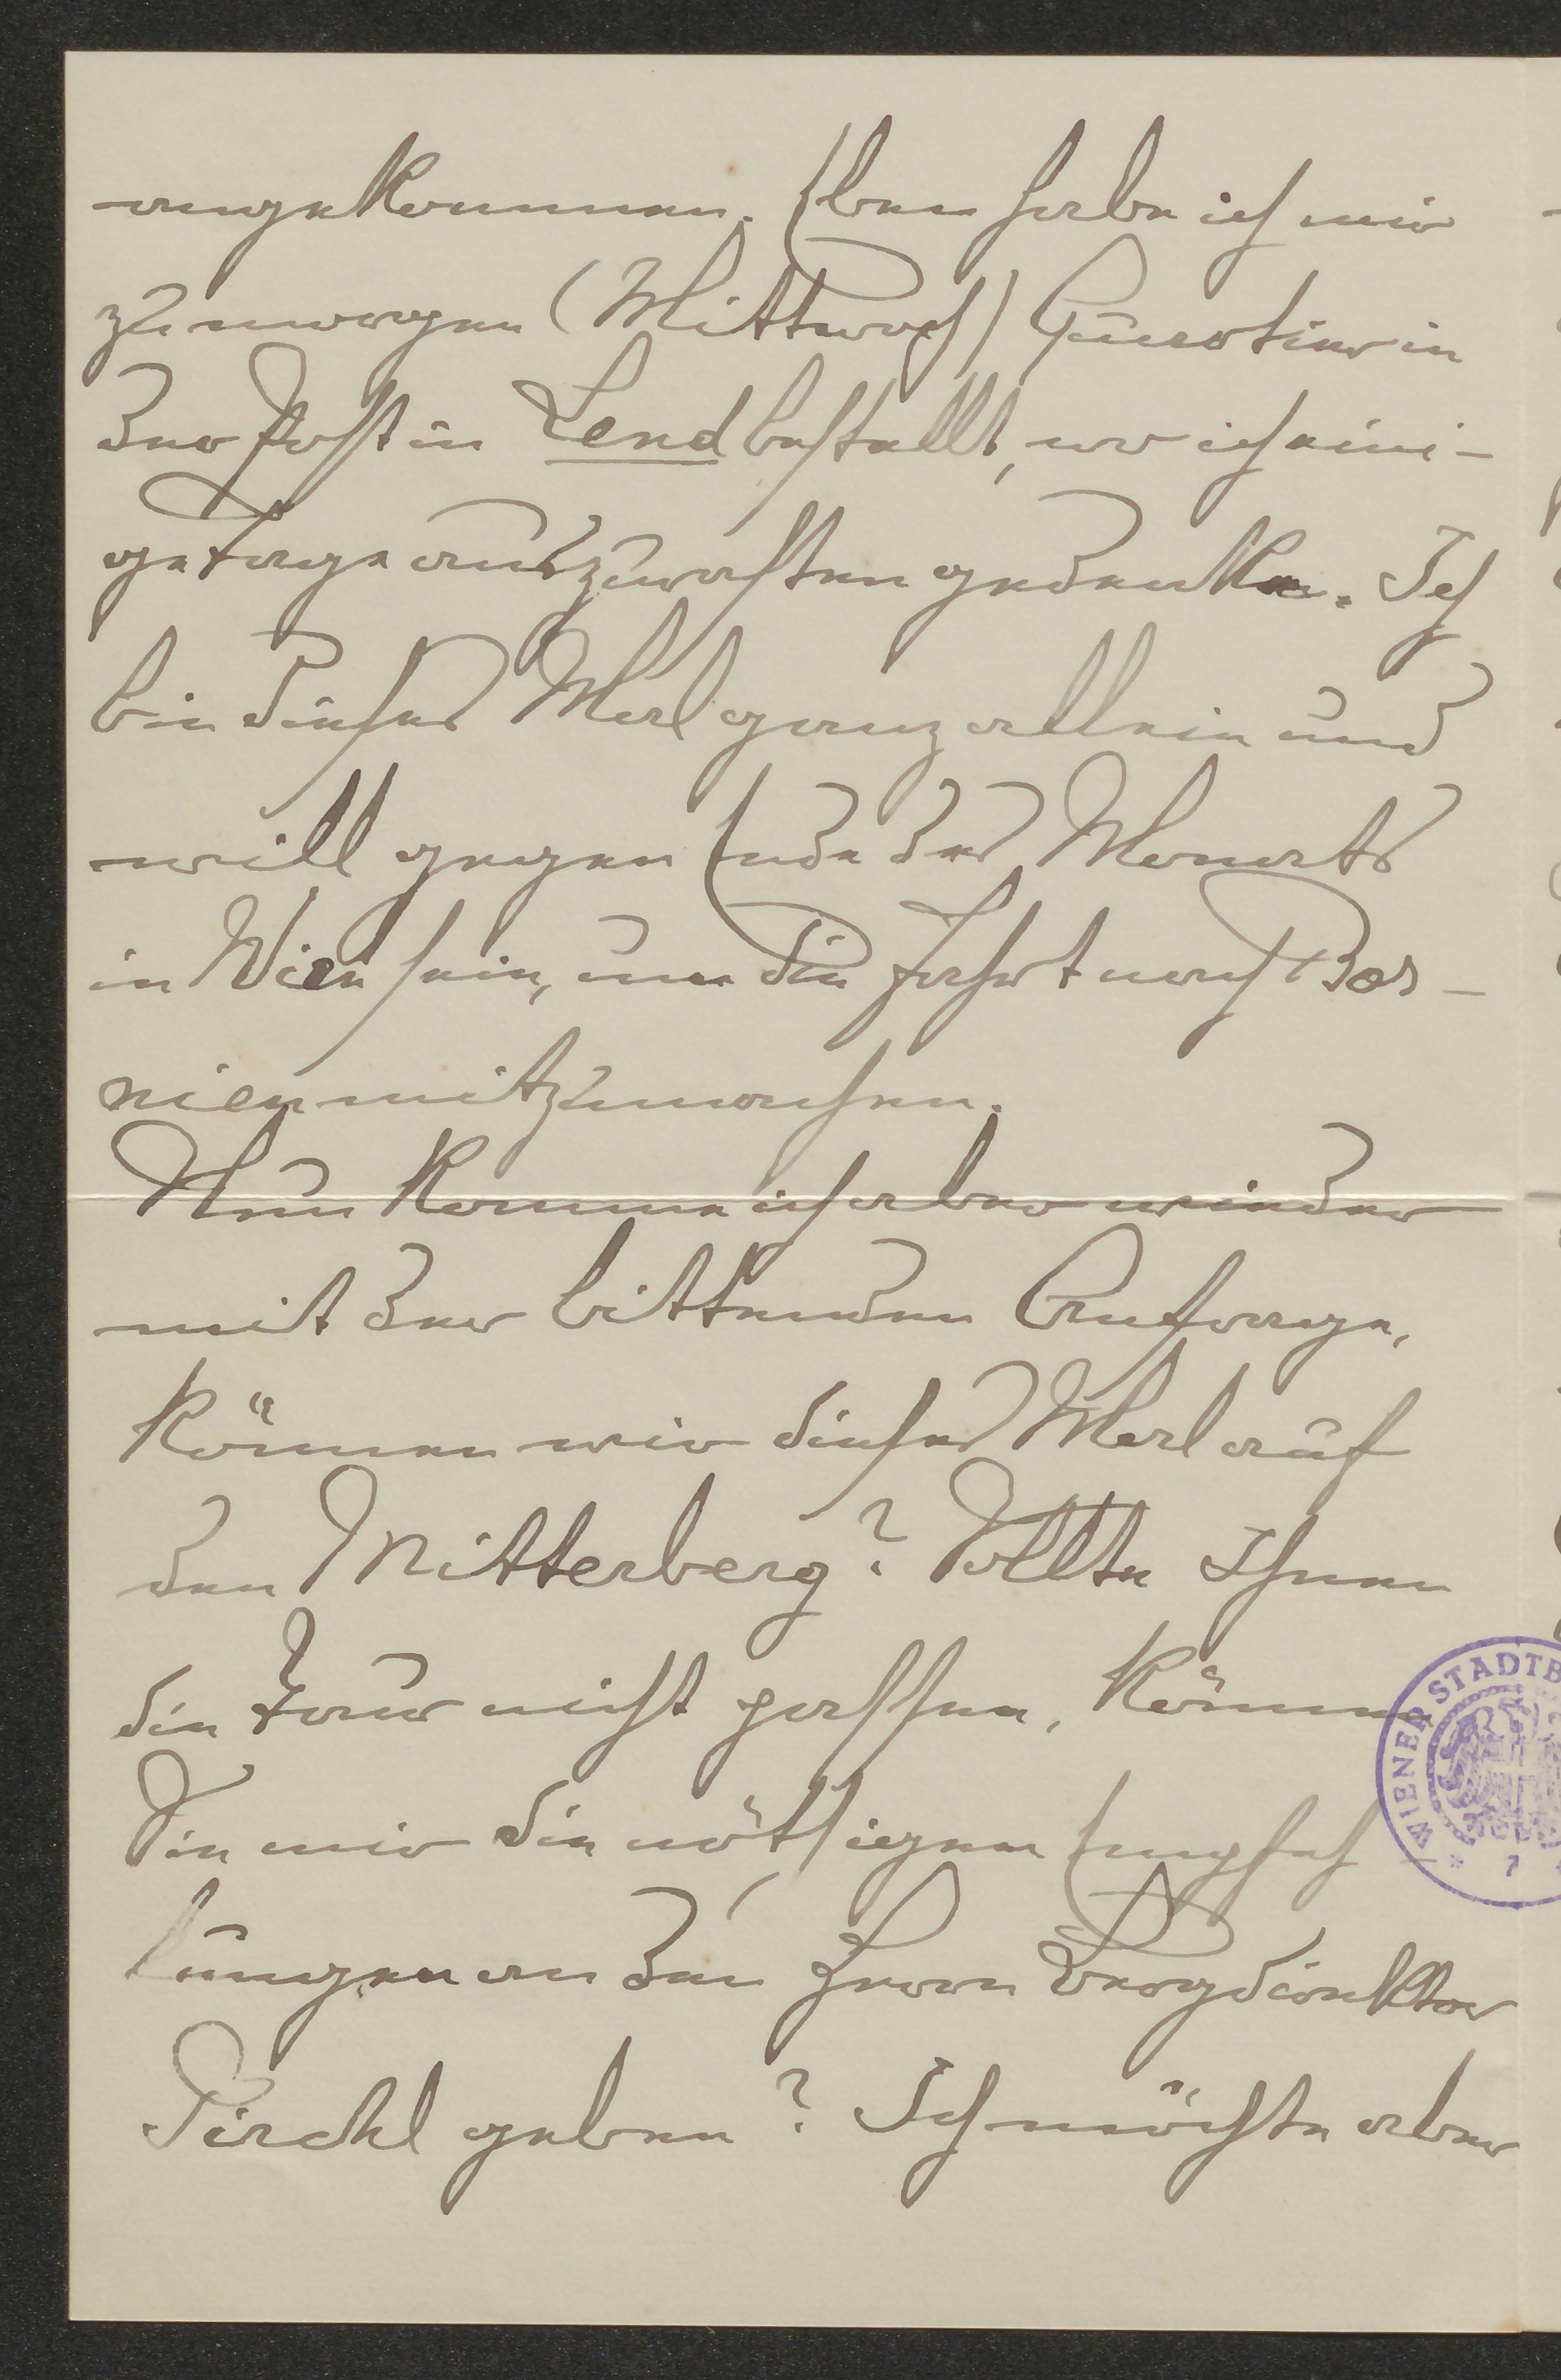 angekommen. Eben habe ich mir
zu morgen (Mittwoch) Quartier in
der Post in Lend bestellt, wo ich eini-
ge Tage auszurasten gedenke. Ich
bin dieses Mal ganz allein und
will gegen Ende des Monats
in Wien sein, um die Fahrt nach Bos-
nien mitzumachen.
Nun komme ich aber wieder
mit der bittenden Anfrage,
können wir dieses Mal auf
den Mitterberg? Sollte Ihnen
die Tour nicht passen, können
Sie mir die nöthigen Empfeh-
lungen an den Herrn Bergdirektor
Pirchl geben? Ich möchte aber
WIENER STADTB